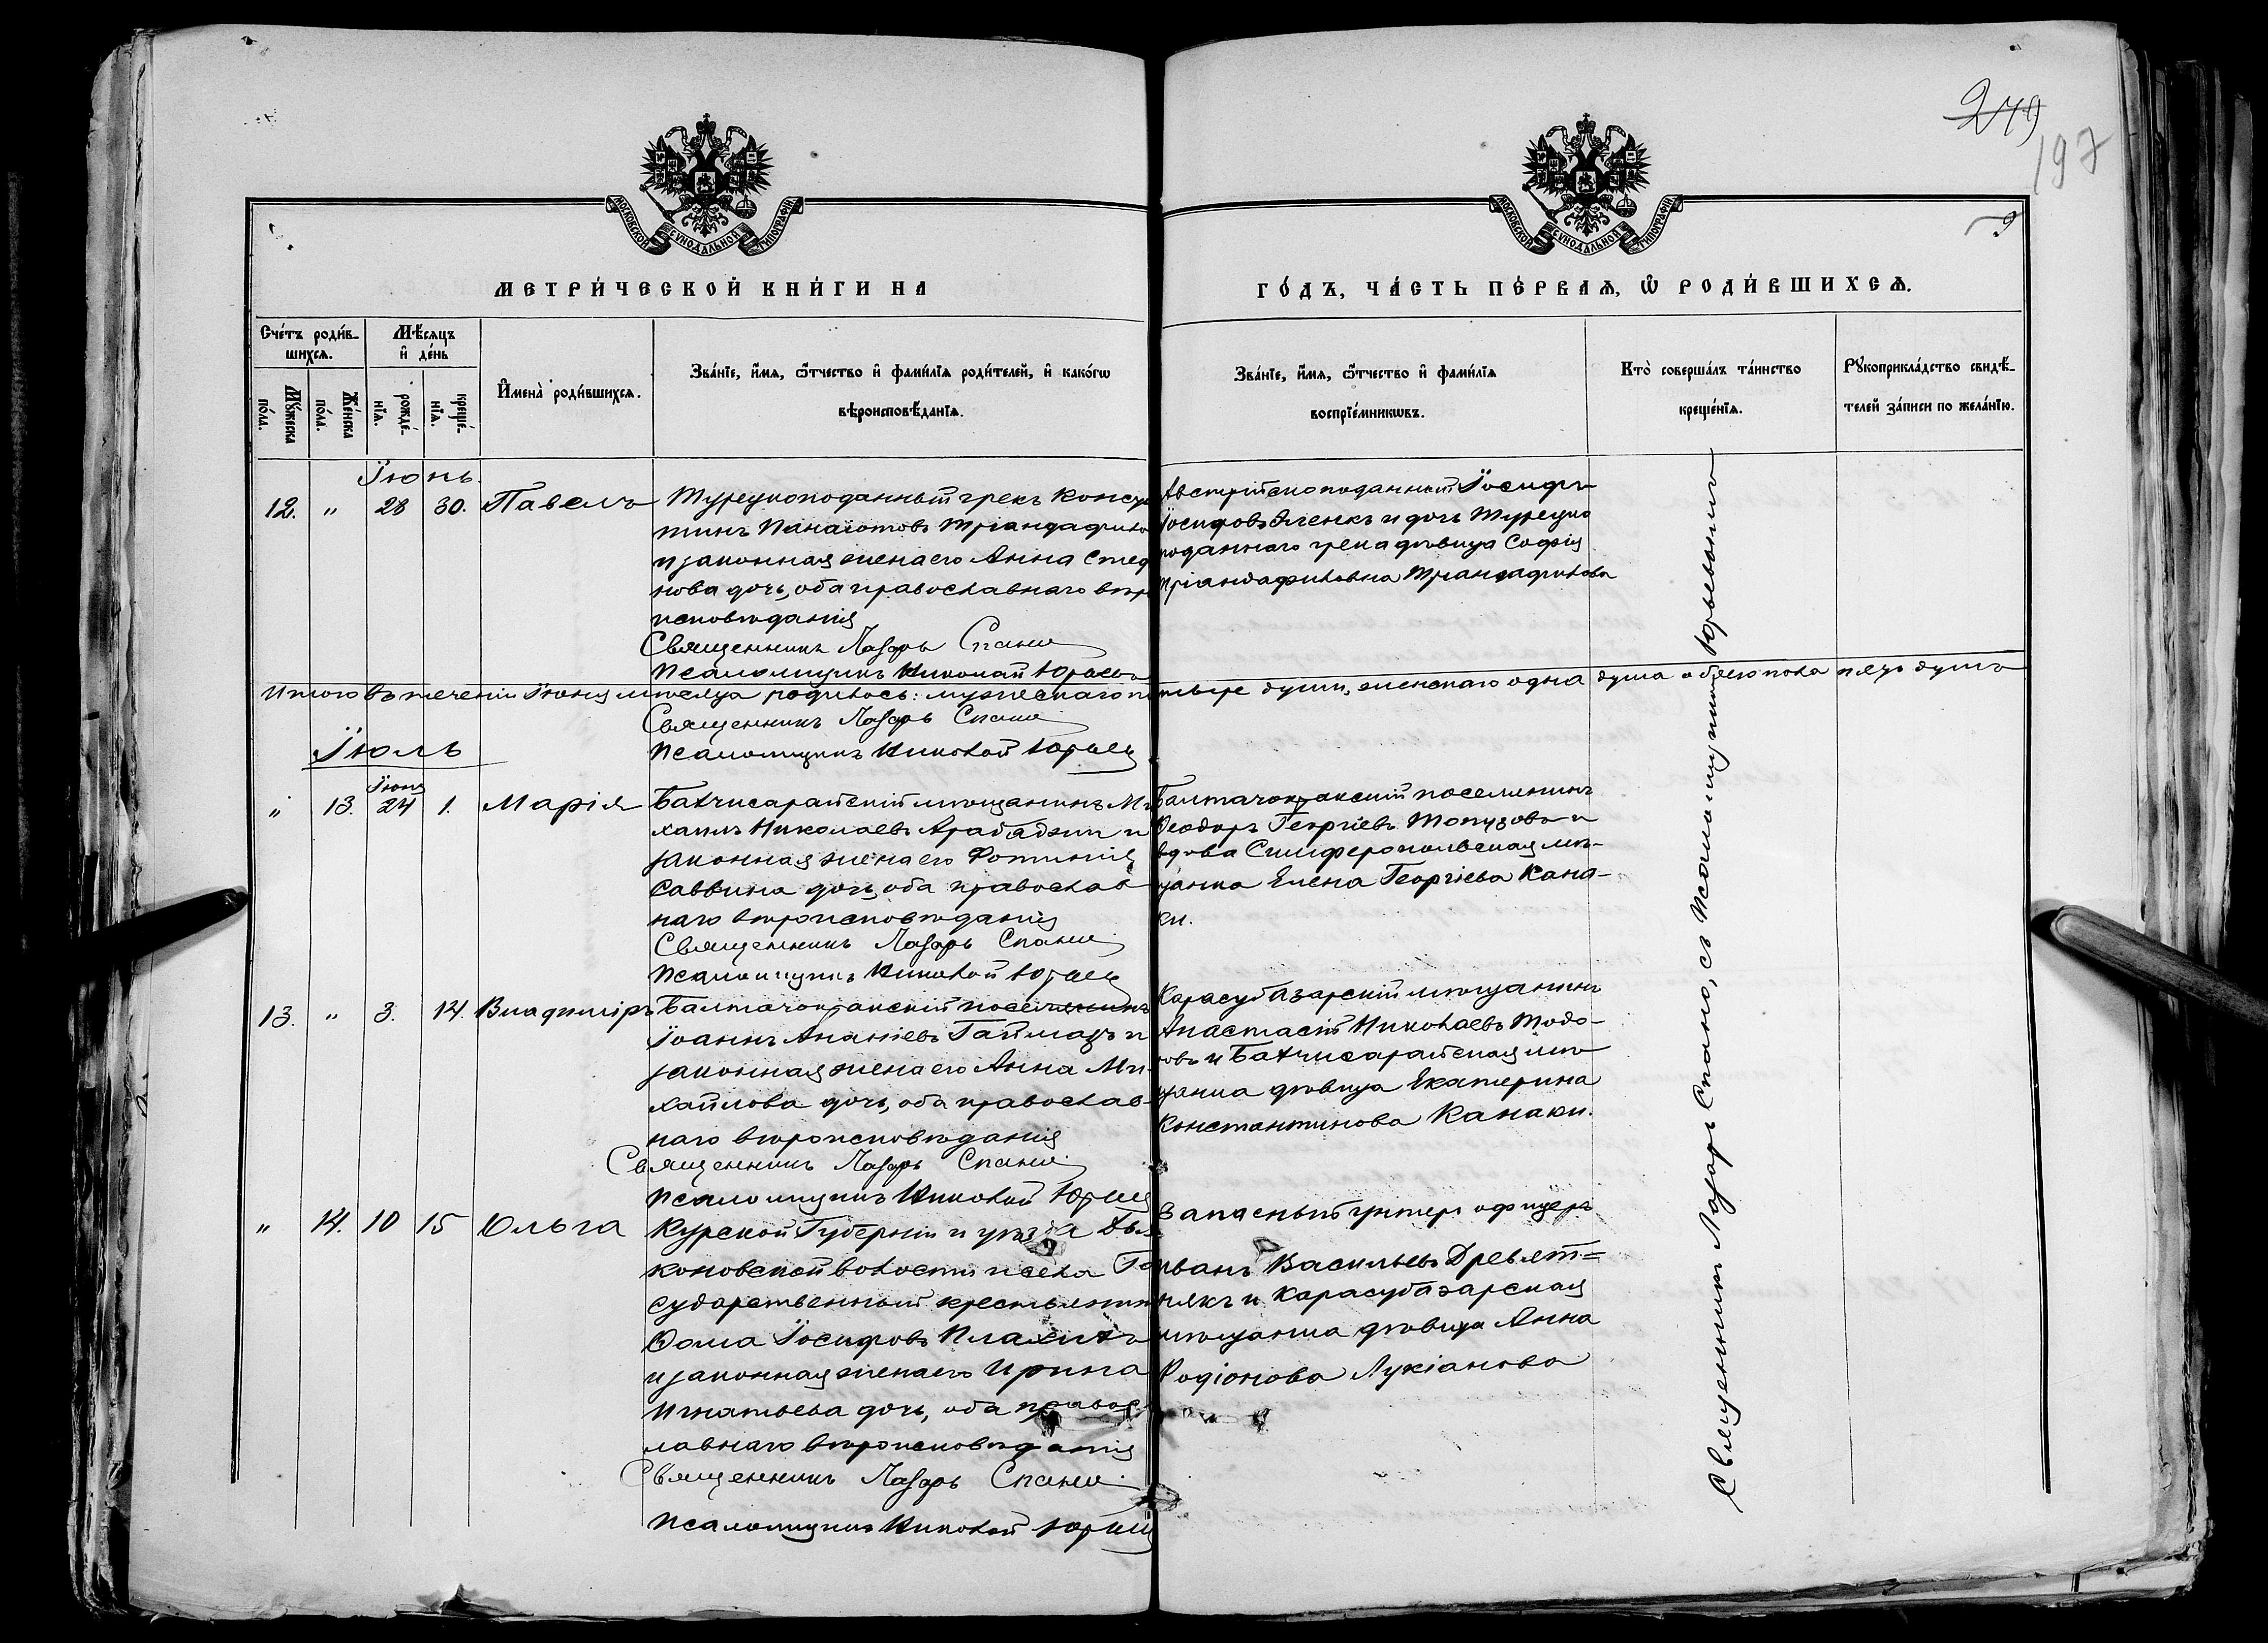 249
197
9
МОСКОВСКОЙ СѴНОДАЛЬНОЙ ТИПОГРАФІИ
МОСКОВСКОЙ СѴНОДАЛЬНОЙ ТИПОГРАФІИ
МЕТРИ́ЧЕСКОЙ КНИ́ГИ НА
ГО́ДЪ, ЧА́СТЬ ПЕ́РВАѦ, Ѡ҆ РОДИ́ВШИХСѦ.
Сче́тъ роди́в-
шихсѧ.
Мѣ́сѧцъ
и҆ де́нь
Мꙋ́жеска
по́ла.
Же́нска
по́ла.
рожде́-
нїѧ.
креще́-
нїѧ.
И҆мена̀ роди́вшихсѧ.
Зва́нїе, и҆́мѧ, ѻ҆́тчество и҆ фами́лїѧ роди́телей, и҆ како́гѡ
вѣроисповѣ́данїѧ.
Зва́нїе, и҆́мѧ, ѻ҆́тчество и҆ фами́лїѧ
воспрїе́мникѡвъ.
Кто̀ соверша́лъ та́инство
креще́нїѧ.
Рꙋкоприкла́дство свидѣ́-
телей за́писи по жела́нїю.
Іюнь
12. " 28 30. Павелъ
Турецкоподанный грекъ Конста
тинъ Панаіотовъ Тріандафило
и законная жена его Анна Стеф
нова дочь, оба православнаго вѣро
исповѣданія
Священникъ Лазарь Спано
Псаломщикъ Николай Юрьевъ
Австрійскоподанный Іосифъ
Іосифовъ Яленкъ и дочь Турецко
поданнаго грека дѣвица Софія
Тріандафиловна Тріандафилова
Итого въ теченіи Іюня мѣсяца родилось: мужескаго четыре души, женскаго одна душа обоего пола пять душъ
Священникъ Лазарь Спано
Псаломщикъ Николай Юрьевъ
Іюль
Іюня
" 13. 24 1. Марія
Бахчисарайскій мѣщанинъ Ми
хаилъ Николаевъ Арабаджи и
законная жена его Фотинія
Саввина дочь, оба православ
наго вѣроисповѣданія
Священникъ Лазарь Спано
Псаломщикъ Николай Юрьевъ
Балтачокракскій поселянинъ
Ѳеодоръ Георгіевъ Топузовъ и
вдова Симферопольская мѣ-
щанка Елена Георгіева Кана-
ки.
13. " 3. 14. Владиміръ
Балтачокракскій поселянинъ
Іоаннъ Ананіевъ Гаймазъ и
законная жена его Анна Ми-
хайлова дочь, оба православ-
наго вѣроисповѣданія
Священникъ Лазарь Спано
Псаломщикъ Николай Юрьевъ
Карасубазарскій мѣщанинъ
Анастасій Николаевъ Тодо-
ровъ и Бахчисарайская мѣ
щанка дѣвица Екатерина
Константинова Канаки.
" 14. 10 15 Ольга
Курской Губерніи и уѣзда Дья
коновской волости и села Го
сударственный крестьянин
Ѳома Іосифовъ Плахихъ
и законная жена его Ирина
Игнатьева дочь, оба правос
лавнаго вѣроисповѣданія
Священникъ Лазарь Спано
Псаломщикъ Николай Юрьевъ
Запасный унтеръ офицеръ
Иванъ Васильевъ Древет=
някъ и Карасубазарская
мѣщанка дѣвица Анна
Родіонова Лукіанова
Священникъ Лазарь Спано, съ псаломщикомъ Юрьевымъ